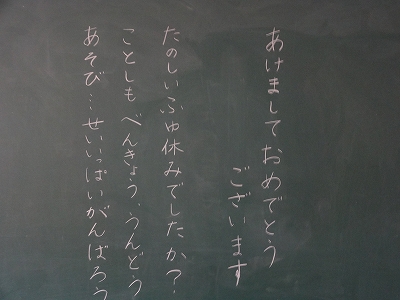 あけましておめでとう
ございます
たのしいふゆ休みでしたか？
ことしもべんきょう、うんどう
あそび…せいいっぱいがんばろう